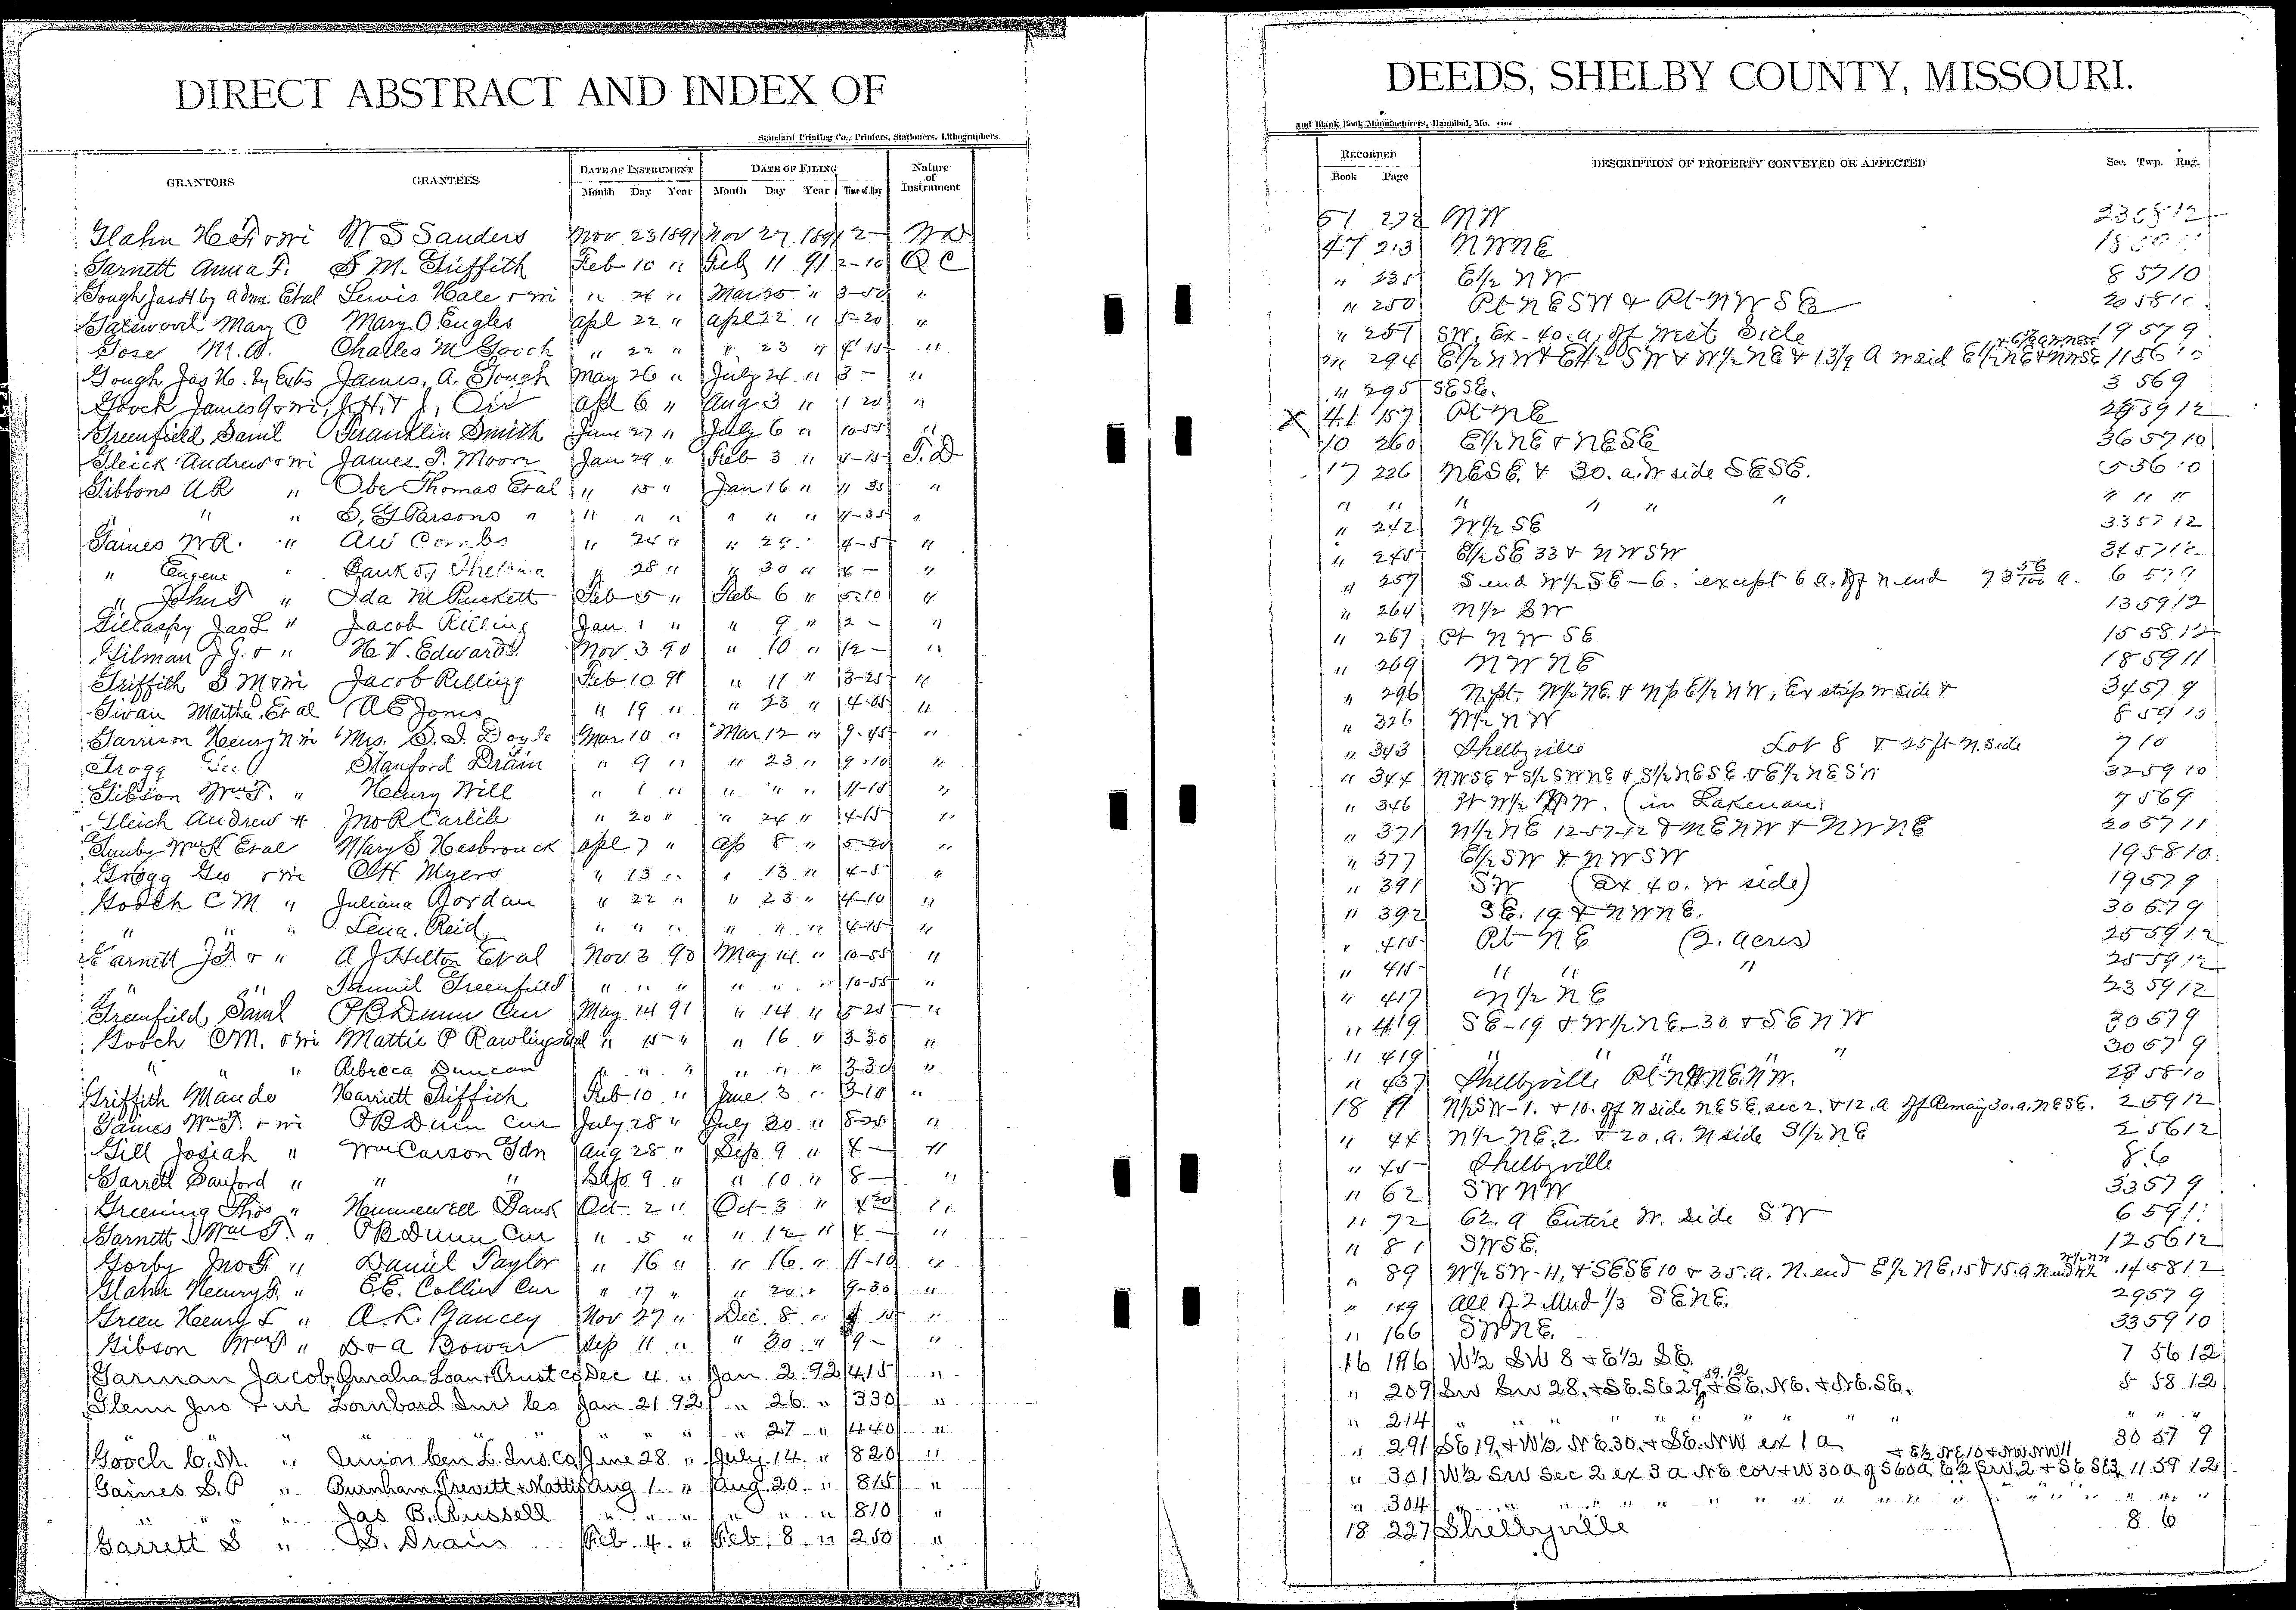 DIRECT ABSTRACT AND INDEX OF
Standard Printing Co., Printers, Stationers, Lithographers
GRANTORS GRANTEES DATE OF INSTRUMENT DATE OF FILING Nature of Instrument
Month Day Year Month Day Year Time of Day
Glahn H F & wi W S Sanders Nov 23 1891 Nov 27 1891 2- WD
Garnett Anna F. S M. Griffith Feb 10 " Feb 11 91 2-10 QC
Gough Jas H by Adm. Etal Lewis Hale & wi " 26 " Mar 25 " 3-50 "
Gatewood Mary C Mary O. Eugles Apl 22 " Apl 22 " 5-20 "
Gose M. A. Charles M Gooch " 22 " " 23 " 4 15 "
Gough Jas H. by Exts James. A. Gough May 26 " July 24 " 3 - "
Gooch James & wi, J. H. & J, Orr Apl 6 " Aug 3 " 1 20 "
Greenfield Saml Franklin Smith June 27 " July 6 " 10-55 "
Gleick Andrew & wi James. P. Moore Jan 29 " Feb 3 " 4-15 T. D
Gibbons A R " Obe Thomas Etal " 15 " Jan 16 " 11 35 "
" " " S, G Parsons " " " " " " " 11-35 "
Gaines W R. " A W Combs " 24 " " 29 " 4-5 "
" Eugene " Bank of Shelbina " 28 " " 30 " 4 - "
" John T " Ida M Puckett Feb 5 " Feb 6 " 5-10 "
Gillaspy Jas L " Jacob Rilling Jan 1 " " 9 " 2 - "
Gilman J G. & " H V. Edwards Nov. 3 90 " 10 " 12 - "
Griffith S M & wi Jacob Rilling Feb 10 91 " 11 " 3-25 "
Givan Martha. Et al A E Jones " 19 " " 23 " 4-05 "
Garrison Henry N wi Mrs. S. J. Doyle Mar 10 " Mar 12 " 9-45 "
Grogg Geo Stanford Drain " 9 " " 23 " 9-10 "
Gibson Wm T. " Henry Will " 1 " " " " 11-10 "
Gleich Andrew " Jno R Carlile " 20 " " 24 " 4-15 "
Gunby Wm H Etal Mary S Hasbrouck Apl 7 " Ap 8 " 5-20 "
Grogg Geo & wi C H Myers " 13 " " 13 " 4-5 "
Gooch C M " Juliana Jordan " 22 " " 23 " 4-10 "
" " " Lena. Reid " " " " " " 4-15 "
Garnett J F & " A J Hilton Etal Nov 3 90 May 14 " 10-55 "
" " Samuel Greenfield " " " " " " 10-55 "
Greenfield Saml P B Dunn Cur May 14 91 " 14 " 5-25 "
Gooch C M. & wi Mattie P Rawlings etal " 15 " " 16 " 3-30 "
" " " Rebecca Duncan " " " " " " 3-30 "
Griffith Maude Harriett Griffith Feb 10 " June 3 " 3-10 "
Gaines Wm T. & wi P B Dunn Cur July 28 " July 30 " 8-25 "
Gill Josiah " Wm Carson Gdn Aug 28 " Sep 9 " 4 - "
Garrett Sanford " " " Sep 9 " " 10 " 8 - "
Greening Thos " Hunnewell Bank Oct 2 " Oct 3 " 4 20 "
Garnett Wm T. " P B Dunn Cur " 5 " " 12 " 4 - "
Gorby Jno F " Daniel Taylor " 16 " " 16 " 11-10 "
Glahn Henry F. " E E. Collier Cur " 17 " " 20 " 9-30 "
Green Henry L " A. L. Yancey Nov 27 " Dec. 8 " 15 "
Gibson Wm T " D & A Bower Sep 11 " " 30 " 9 - "
Garman Jacob Omaha Loan & Trust Co Dec 4. " Jan. 2. 92 415 "
Glenn Jno & wi Lombard Inv Co Jan 21. 92 " 26. " 330 "
" " " " " " " " 27 " 440 "
Gooch C. M. " Union Cen L. Ins. Co. June 28. " July 14. " 820 "
Gaines S. P " Burnham, Trevett & Mattis Aug 1. " Aug. 20 " 815 "
" " " Jas B. Russell " " " " " " 810 "
Garrett S " S. Drain Feb. 4. " Feb. 8 " 250 "
DEEDS, SHELBY COUNTY, MISSOURI.
and Blank Book Manufacturers, Hannibal, Mo.
RECORDED DESCRIPTION OF PROPERTY CONVEYED OR AFFECTED Sec. Twp. Rng.
Book Page
51 272 NW 23 58 12
47 213 NWNE 18
" 235 E1/2 NW 8 57 10
" 250 Pt NESW & Pt NWSE 20 58 10
" 251 SW, Ex. 40. a, off West Side 19 57 9
" 294 E1/2 NW & E1/2 SW & W1/2 NE & 13 1/2 A W sid E1/2 NE & NWSE 11 56 10
" 295 SESE. 3 56 9
X 41 157 Pt NE 25 59 12
10 260 E1/2 NE & NESE 36 57 10
17 226 NESE, & 30. a. W side SESE. 5 56 10
" " " " " " " "
" 242 W1/2 SE 33 57 12
" 245 E1/2 SE 33 & NWSW 34 57 12
" 257 S end W1/2 SE - 6. except 6 a. off N end 73 56/100 a. 6 57 9
" 264 N1/2 SW 13 59 12
" 267 Pt NW SE 15 58 12
" 269 NWNE 18 59 11
" 296 N. pt. W1/2 NE. & N p E1/2 NW, Ex strip W side & 34 57 9
" 326 W1/2 NW 8 59 10
" 343 Shelbyville Lot 8 & 25 ft N. side 7 10
" 344 NWSE & S1/2 SWNE & S1/2 NESE. & E1/2 NESW 32 59 10
" 346 Pt W1/2 NW. (in Lakenan) 7 56 9
" 371 N1/2 NE 12-57-12 & NENW & NWNE 20 57 11
" 377 E1/2 SW & NWSW 19 58 10
" 391 SW (Ex 40. W side) 19 57 9
" 392 SE. 19 & NWNE. 30 57 9
" 415 Pt NE (2. acres) 25 59 12
" 415 " " " 25 59 12
" 417 N1/2 NE 23 59 12
" 419 SE-19 & W1/2 NE-30 & SENW 30 57 9
" 419 " " " " 30 57 9
" 437 Shelbyville Pt NW. NE. NW. 28 58 10
18 11 N1/2 SW-1. & 10. off N side NESE, sec 2, & 12. a off Remaig 30. a. NESE. 2 59 12
" 44 N1/2 NE, 2. & 20. a. N side S1/2 NE 2 56 12
" 45 Shelbyville 8. 6
" 62 SWNW 33 57 9
" 72 62. a Entire W. Side SW 6 59 11
" 81 SWSE. 12 56 12
" 89 W1/2 SW-11, & SESE 10 & 35. a. N. end E1/2 NE, 15 & 15. a N end W1/2 W1/2 NW 14 58 12
" 149 All Und 1/3 SENE. 29 57 9
" 166 SWNE. 33 59 10
16 196 W1/2 SW 8 & E1/2 SE. 7 56 12
" 209 SW SW 28. & SE. SE 29, 59. 12 & SE. NE. & NE. SE. 5 58 12
" 214 " " " " " " " " " " "
" 291 SE 19, & W1/2 NE. 30. & SE. NW ex 1 a 30 57 9
& E1/2 NE 10 & NW NW 11
" 301 W1/2 SW Sec 2 ex 3 a NE cor & W 30 a of S 60 a E1/2 SW. 2 & SE SE 3 11 59 12
" 304 " " " " " " " " " " " "
18 227 Shelbyville 8 6